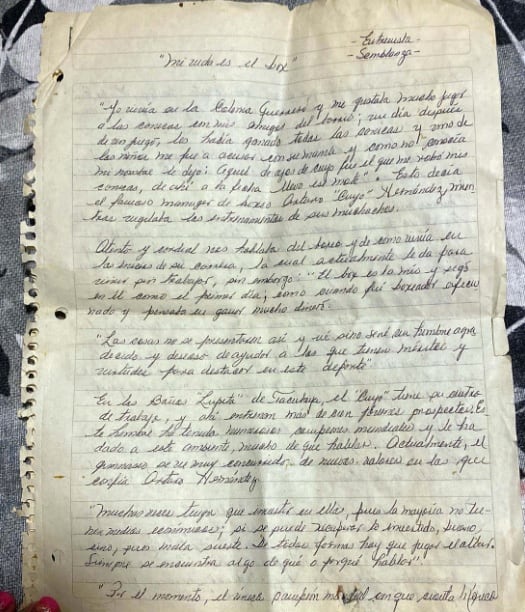 - Entrevista
- Semblanza -
"Mi vida es el box"
"Yo vivía en la Colonia Guerrero y me gustaba mucho jugar
a las canicas con mis amigos del barrio; un día después
de un juego, les había ganado todas las canicas y uno de
los niños me fue a acusar con su mamá y como no conocía
mi nombre le dijo: Aquel de ojos de cuyo fue el que me robó mis
canicas, de ahí a la fecha llevo ese mote". Esto decía
el famoso manager de boxeo Arturo "Cuyo" Hernández mien
tras vigilaba los entrenamientos de sus muchachos.
Atento y cordial nos hablaba del boxeo y de como vivía en
los inicios de su carrera, la cual actualmente le da para
vivir sin trabajar, sin embargo: "El box es lo mío y sigo
en él como el primer día, como cuando fuí boxeador aficio
nado y pensaba en ganar mucho dinero.
"Las cosas no se presentaron así y ni sino será un hombre agra
decido y deseoso de ayudar a los que tienen méritos y
virtudes para destacar en este deporte".
En los Baños Lupita" de Tacubaya, el "Cuyo" tiene su centro
de trabajo, y ahí entrenan más de cien jóvenes prospectos. Es
te hombre ha tenido numerosos campeones mundiales y le ha
dado a este ambiente, mucho de que hablar. Actualmente, el
gimnasio se ve muy concurrido de nuevos valores en los que
confía Arturo Hernández.
"Muchas veces tengo que invertir en ellos, pues la mayoría no tie
nen medios económicos; si se puede recuperar lo invertido, bueno,
sino, pues mala suerte. De todas formas hay que jugar el albur.
Siempre se encuentra algo de qué o porqué hablar".
"Por el momento, el único campeón mundial en que